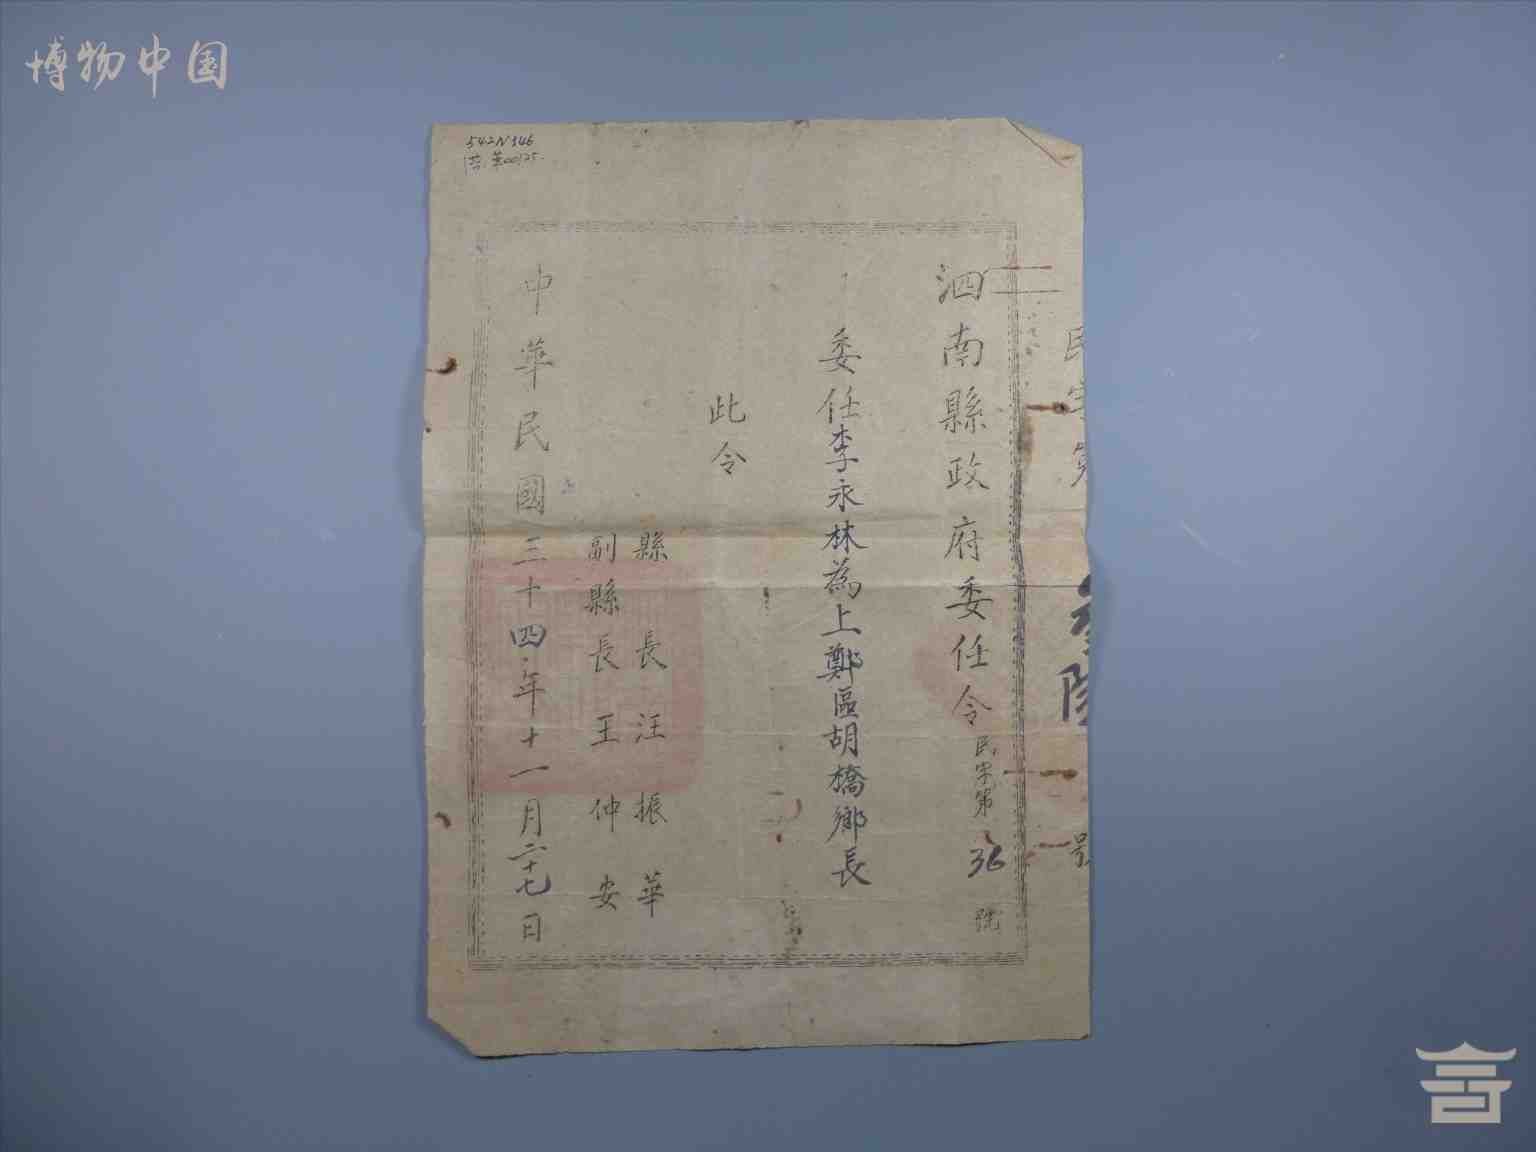 博物中国
542N146
泗南縣政府委任令 民字第36號
委任李永林為上鄭區胡橋鄉長
此令
縣長汪振華
副縣長王仲安
中華民國三十四年十一月二十七日
民字第
號